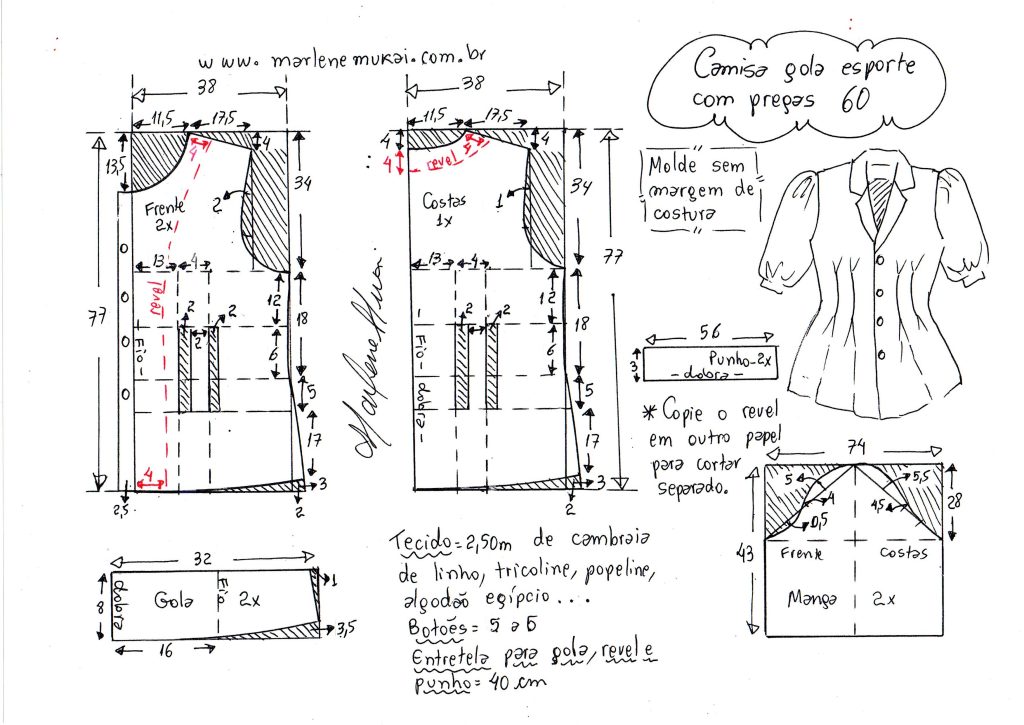 www.marlenemukai.com.br
Camisa gola esporte
com pregas 60
Molde sem
margem de
costura
38
11,5
17,5
13,5
4
4
34
Frente
2x
2
13
4
77
revel
12
18
2
2
2
6
Fio
5
17
4
3
2,5
2
38
11,5
17,5
4
4
4
5
revel
34
Costas
1x
1
77
13
4
12
18
2
2
2
6
Fio
dobra
5
17
3
2
Marlene Mukai
56
3
Punho-2x
- dobra -
* Copie o revel
em outro papel
para cortar
separado.
74
5
5,5
4
4,5
0,5
28
43
Frente
Costas
Manga 2x
32
8
dobra
Gola
Fio
2x
1
3,5
16
Tecido = 2,50m de cambraia
de linho, tricoline, popeline,
algodão egípcio...
Botões = 5 a 6
Entretela para gola, revel e
punho = 40 cm